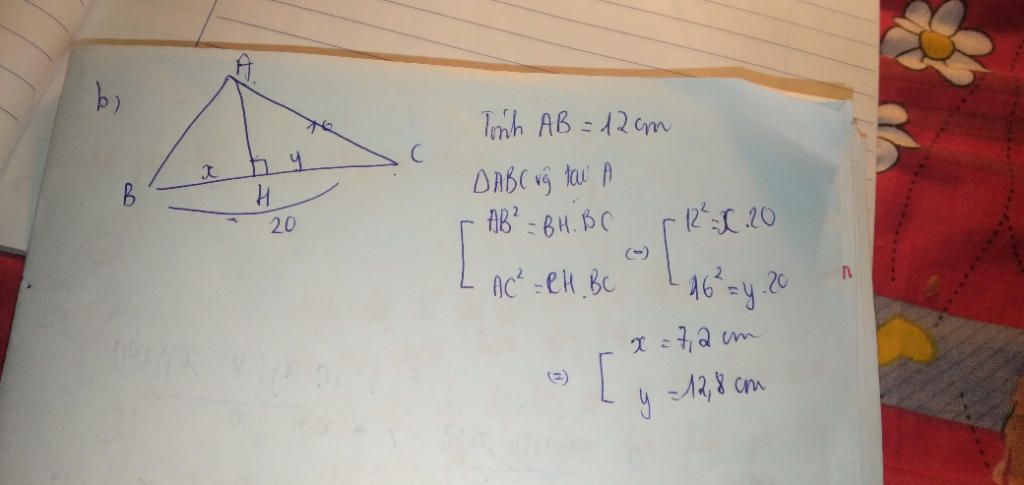 b)
A
16
x
y
B
H
C
20
Tính AB = 12 cm
ΔABC vg tại A
AB² = BH.BC
AC² = CH.BC
(=)
12² = x.20
16² = y.20
(=)
x = 7,2 cm
y = 12,8 cm